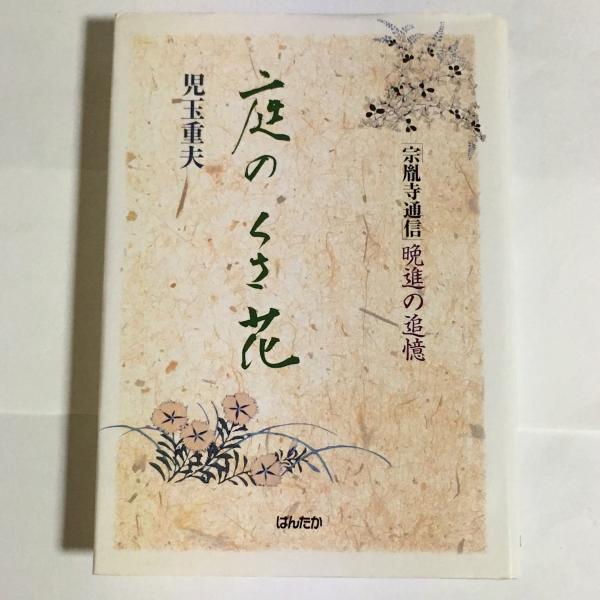 「宗胤寺通信」晩進の追憶
庭のくさ花
児玉重夫
ぱんたか